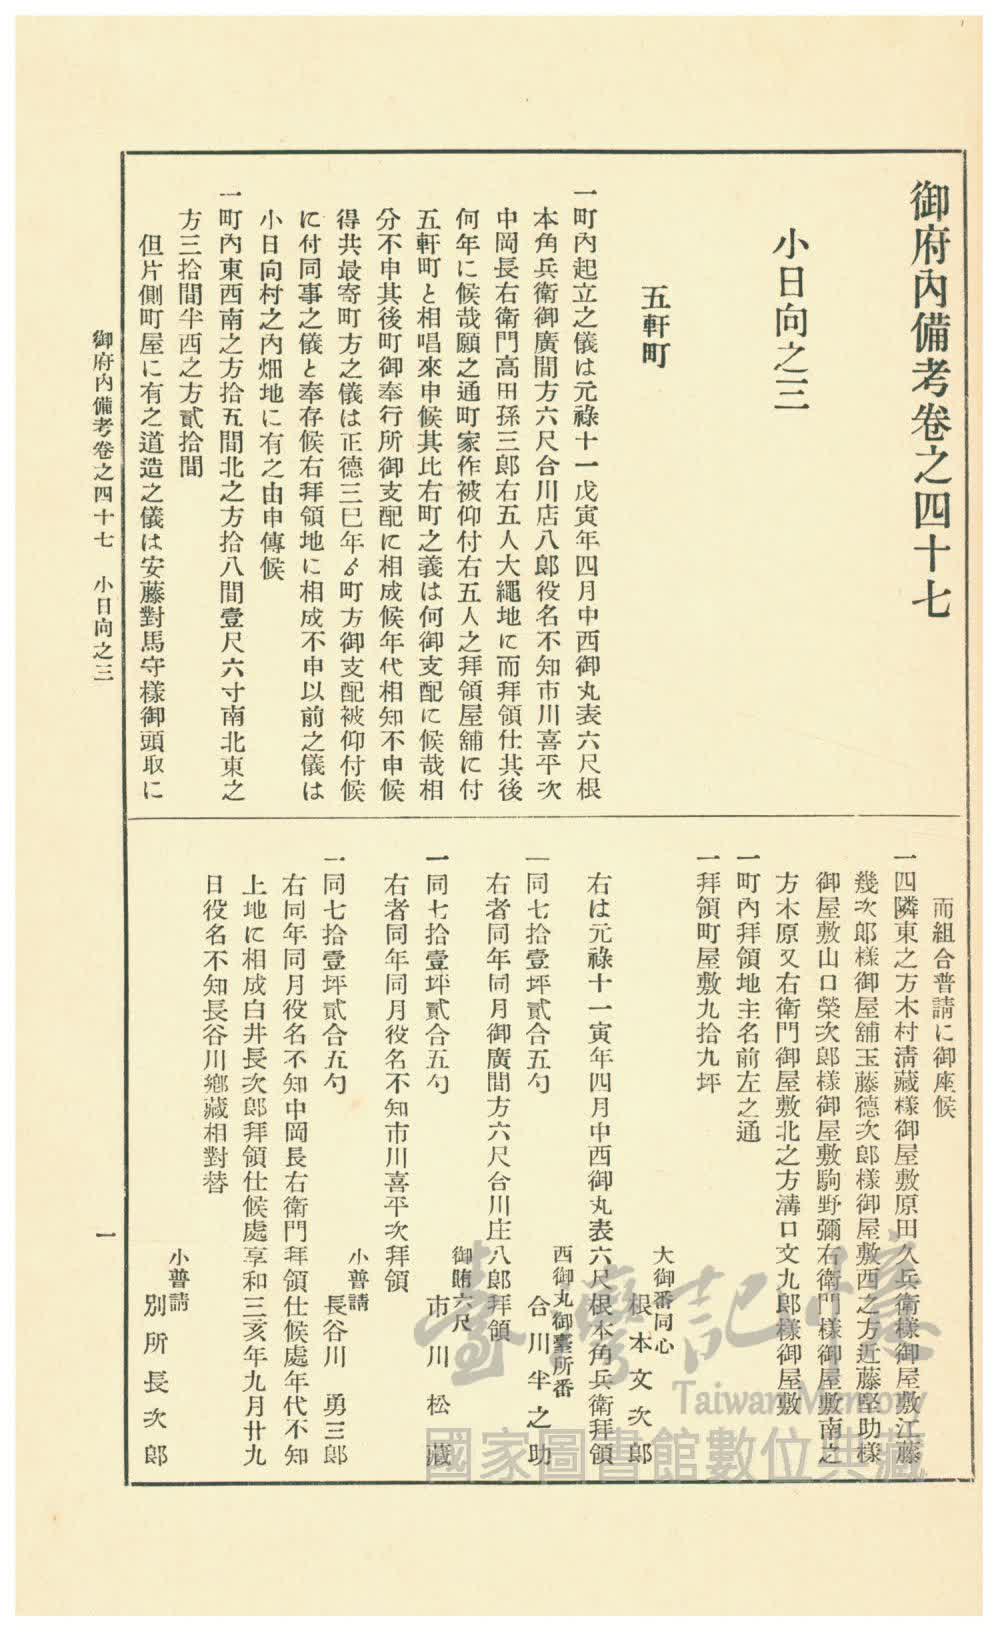 御府內備考卷之四十七
小日向之三
五軒町
一町內起立之儀は元祿十一戊寅年四月中西御丸表六尺根
本角兵衛御廣間方六尺合川店八郎役名不知市川喜平次
中岡長右衛門高田孫三郎右五人大繩地に而拜領仕其後
何年に候哉願之通町家作被仰付右五人之拜領屋舖に付
五軒町と相唱來申候其比右町之義は何御支配に候哉相
分不申其後町御奉行所御支配に相成候年代相知不申候
得共最寄町方之儀は正德三巳年ゟ町方御支配被仰付候
に付同事之儀と奉存候右拜領地に相成不申以前之儀は
小日向村之內畑地に有之由申傳候
一町內東西南之方拾五間北之方拾八間壹尺六寸南北東之
方三拾間半西之方貳拾間
但片側町屋に有之道造之儀は安藤對馬守樣御頭取に
而組合普請に御座候
一四隣東之方木村淸藏樣御屋敷原田久兵衛樣御屋敷江藤
幾次郎樣御屋舖玉藤德次郎樣御屋敷西之方近藤堅助樣
御屋敷山口榮次郎樣御屋敷駒野彌右衛門樣御屋敷南之
方木原又右衛門御屋敷北之方溝口文九郎樣御屋敷
一町內拜領地主名前左之通
一拜領町屋敷九拾九坪
大御番同心
根本文次郎
右は元祿十一寅年四月中西御丸表六尺根本角兵衛拜領
西御丸御臺所番
一同七拾壹坪貳合五勺 合川半之助
右者同年同月御廣間方六尺合川庄八郎拜領
御賄六尺
一同七拾壹坪貳合五勺 市川松藏
右者同年同月役名不知市川喜平次拜領
小普請
一同七拾壹坪貳合五勺 長谷川勇三郎
右同年同月役名不知中岡長右衛門拜領仕候處年代不知
上地に相成白井長次郎拜領仕候處享和三亥年九月廿九
日役名不知長谷川鄕藏相對替
小普請
別所長次郎
御府內備考卷之四十七 小日向之三
一
臺灣記憶
Taiwan Memory
國家圖書館數位典藏